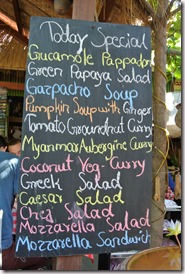 Today Special
Guacamole Pappadom
Green Papaya Salad
Gazpacho Soup
Pumpkin Soup with Ginger
Tomato Groundnut Curry
Myanmar Aubergine Curry
Coconut Veg Curry
Greek Salad
Caesar Salad
Salad
Mozzarella Salad
Mozzarella Sandwich